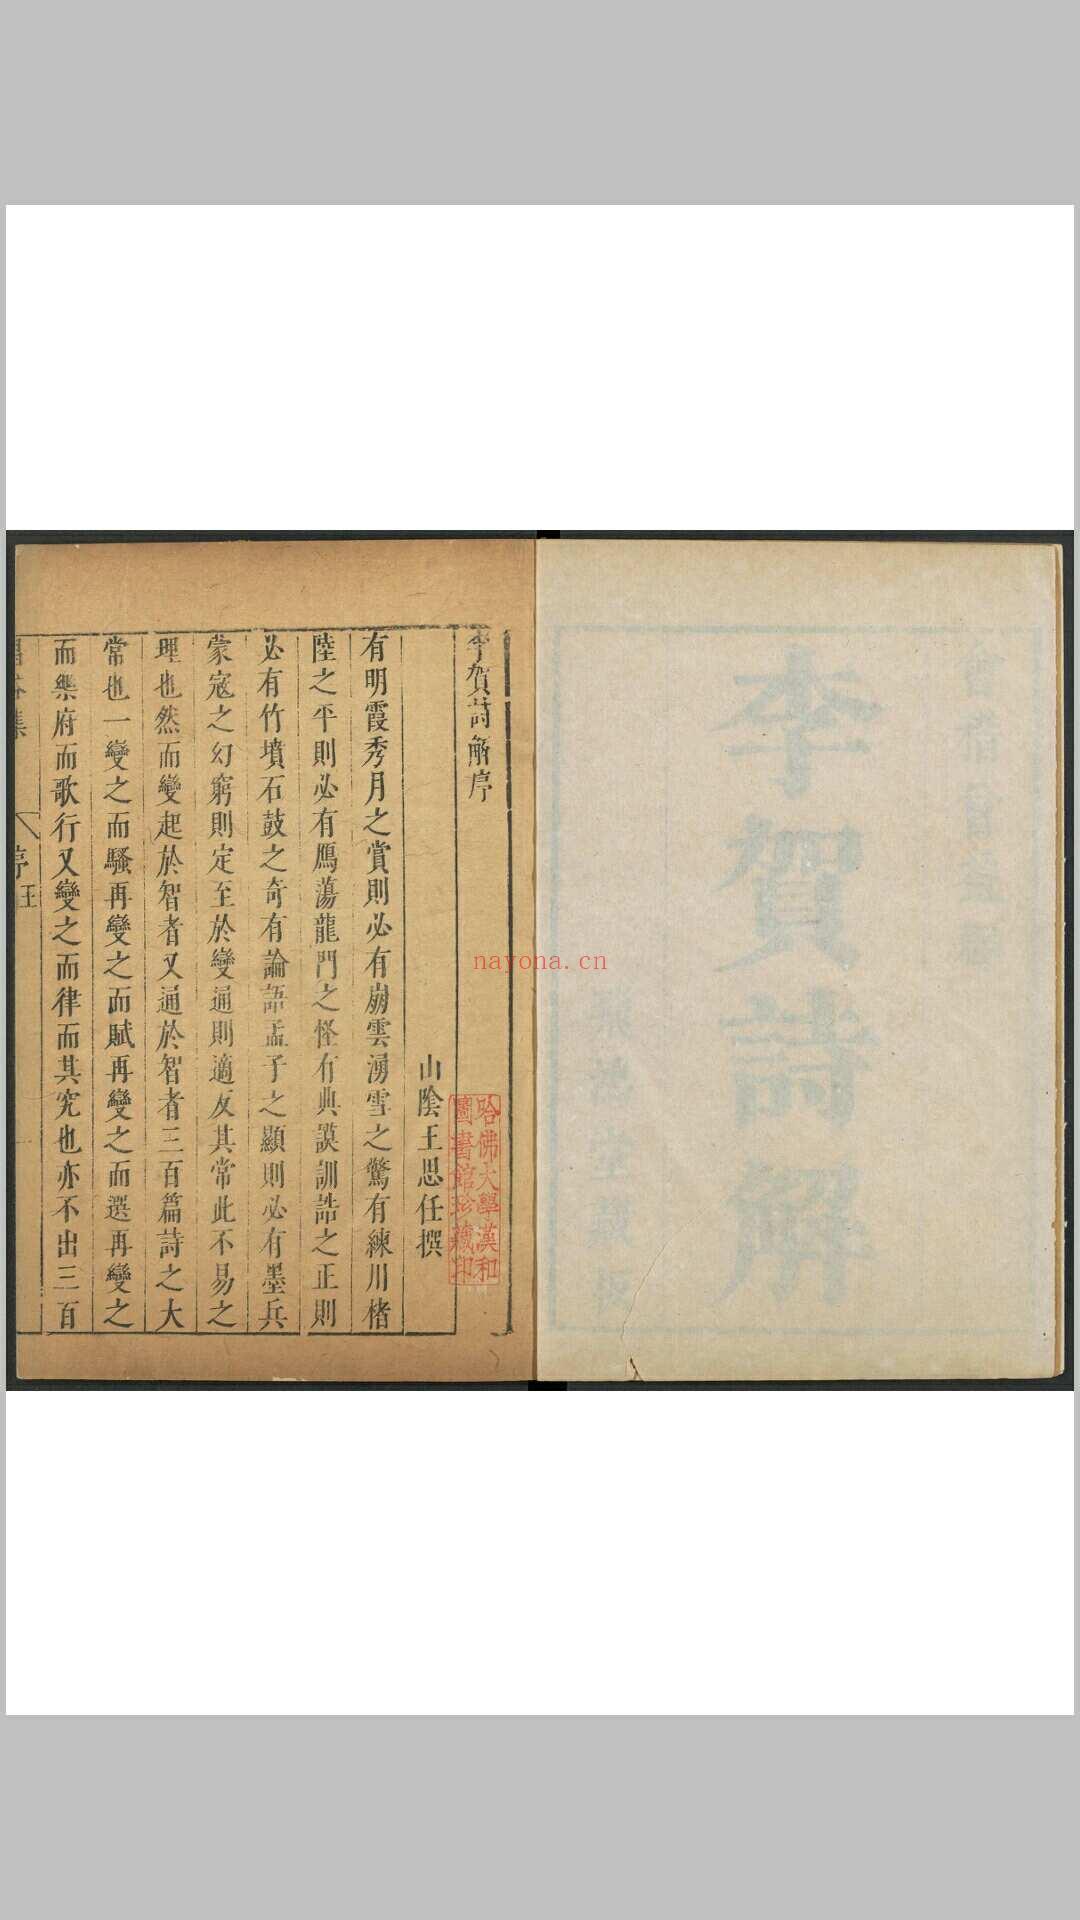 李賀詩解
李賀詩解序
山陰王思任撰
哈佛大學漢和
圖書館珍藏印
有明霞秀月之賞則必有崩雲湧雪之驚有練川楮
陸之平則必有鴈蕩龍門之怪有典謨訓誥之正則
必有竹墳石鼓之奇有論語孟子之顯則必有墨兵
蒙寇之幻窮則定至於變通則適反其常此不易之
理也然而變起於智者又通於智者三百篇詩之大
常也一變之而騷再變之而賦再變之而選再變之
而樂府而歌行又變之而律而其究也亦不出三百
序
nayona.cn